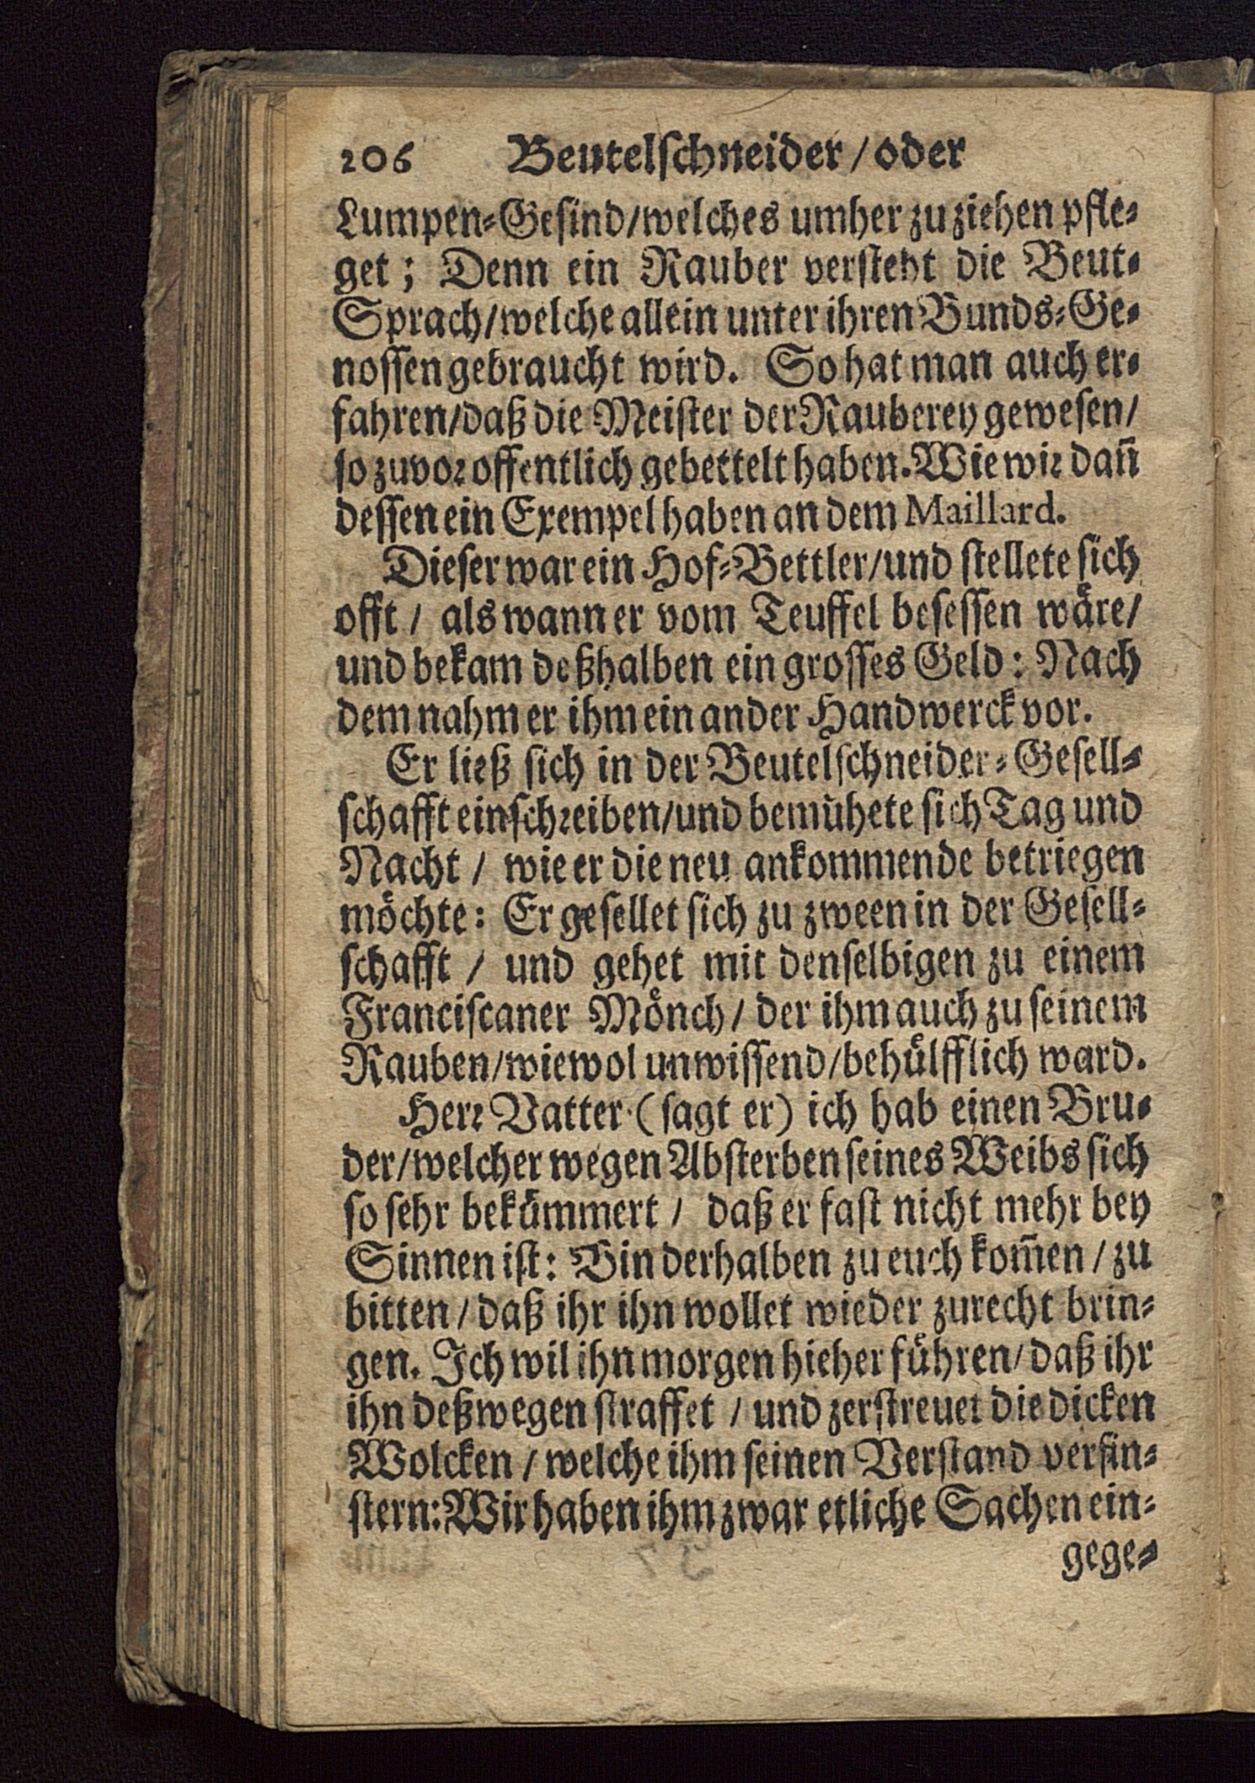 206 Beutelschneider/oder
Lumpen-Gesind/welches umher zu ziehen pfle-
get; Denn ein Rauber versteht die Beut-
Sprach/welche allein unter ihren Bunds-Ge-
nossen gebraucht wird. So hat man auch er-
fahren/daß die Meister der Rauberey gewesen/
so zuvor offentlich gebettelt haben. Wie wir dañ
dessen ein Exempel haben an dem Maillard.
Dieser war ein Hof-Bettler/und stellete sich
offt / als wann er vom Teuffel besessen wäre/
und bekam deßhalben ein grosses Geld: Nach
dem nahm er ihm ein ander Handwerck vor.
Er ließ sich in der Beutelschneider-Gesell-
schafft einschreiben/und bemühete sich Tag und
Nacht / wie er die neu ankommende betriegen
möchte: Er gesellet sich zu zween in der Gesell-
schafft / und gehet mit denselbigen zu einem
Franciscaner Mönch/ der ihm auch zu seinem
Rauben/wiewol unwissend/behülfflich ward.
Herr Vatter (sagt er) ich hab einen Bru-
der/welcher wegen Absterben seines Weibs sich
so sehr bekümmert / daß er fast nicht mehr bey
Sinnen ist: Bin derhalben zu euch kom̃en / zu
bitten / daß ihr ihn wollet wieder zurecht brin-
gen. Ich wil ihn morgen hieher führen/ daß ihr
ihn deßwegen straffet / und zerstreuet die dicken
Wolcken / welche ihm seinen Verstand verfin-
stern: Wir haben ihm zwar etliche Sachen ein-
gege-